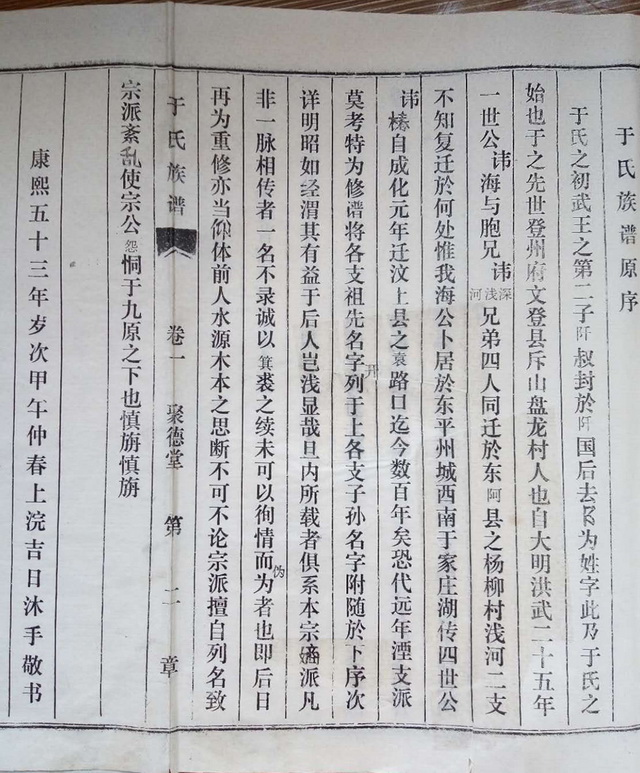 于氏族谱原序
于氏之初武王之第二子阡叔封於阡国后去阝为姓字此及于氏之
始也于之先世登州府文登县斥山盘龙村人也自大明洪武二十五年
一世公讳海与胞兄讳深浅河兄弟四人同迁於东阿县之杨柳村浅河二支
不知复迁於何处惟我海公卜居於东平州城西南于家庄湖传四世公
讳椿自成化元年迁汶上县之袁路口迄今数百年矣恐代远年湮支派
莫考特为修谱将各支祖先名字列于上各支子孙名字附随於下序次
开
详明昭如经渭其有益于后人岂浅显哉旦内所载者俱系本宗嫡派凡
非一脉相传者一名不录诚以箕裘之续未可以徇情而为者也即后日
伪
再为重修亦当仰体前人水源木本之思断不可不论宗派擅自列名致
于氏族谱 卷一 聚德堂 第二章
宗派紊乱使宗公怨恫于九原之下也慎旃慎旃
康熙五十三年岁次甲午仲春上浣吉日沐手敬书